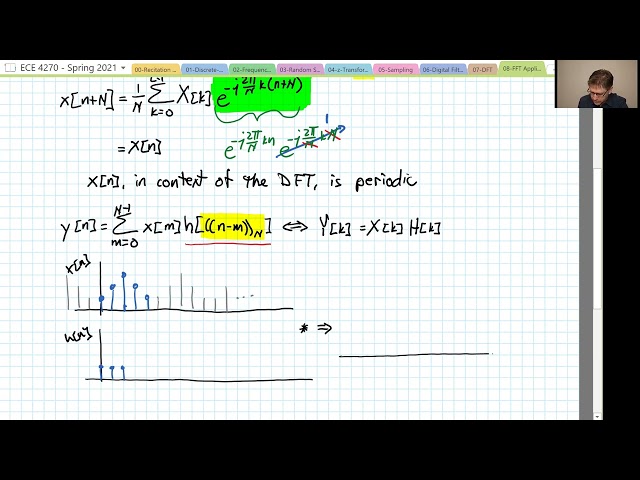 ECE 4270 - Spring 2021 00-Recitation ... 01-Discrete-... 02-Frequenc... 03-Random S... 04-z-Transfor... 05-Sampling 06-Digital Filt... 07-DFT 08-FFT Appli...
x[n+N] = 1/N Σ_{k=0}^{N-1} X[k] e^{-j 2π/N k(n+N)}
= x[n] e^{-j 2π/N kn} e^{-j 2π/N kN} 1
x[n], in context of the DFT, is periodic
y[n] = Σ_{m=0}^{N-1} x[m] h[((n-m))_N] ⇔ Y[k] = X[k] H[k]
x[n]
...
h[n] * ⇒